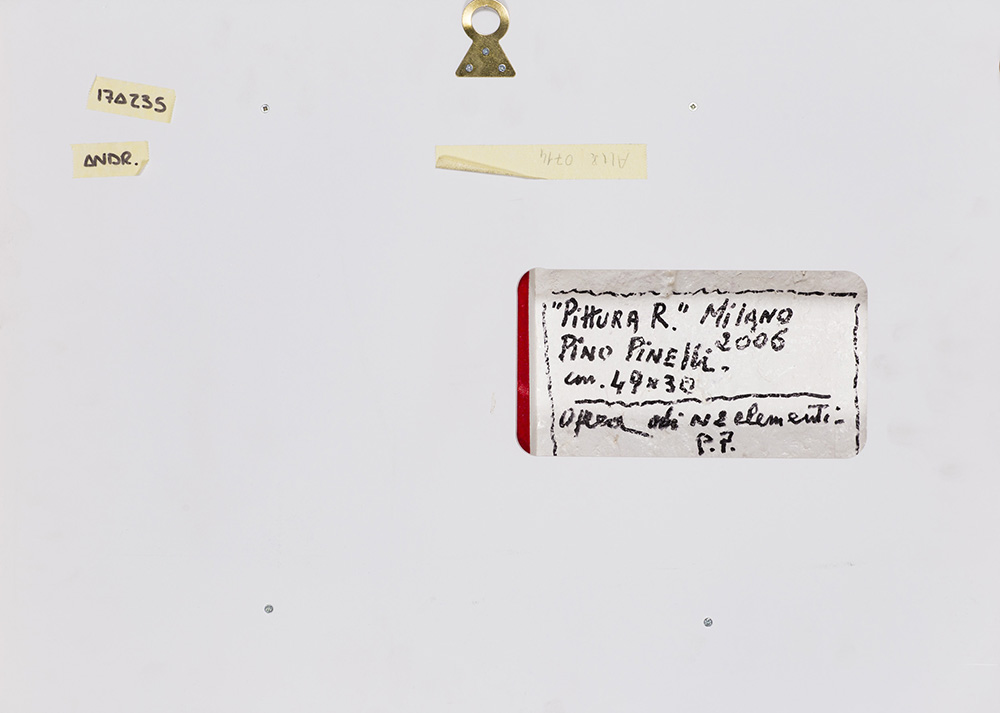 17A235
ANDR.
"PittURA R." MilANO
2006
PiNO PiNElli.
cm. 49x30
Opera di N2 elementi-
P.P.